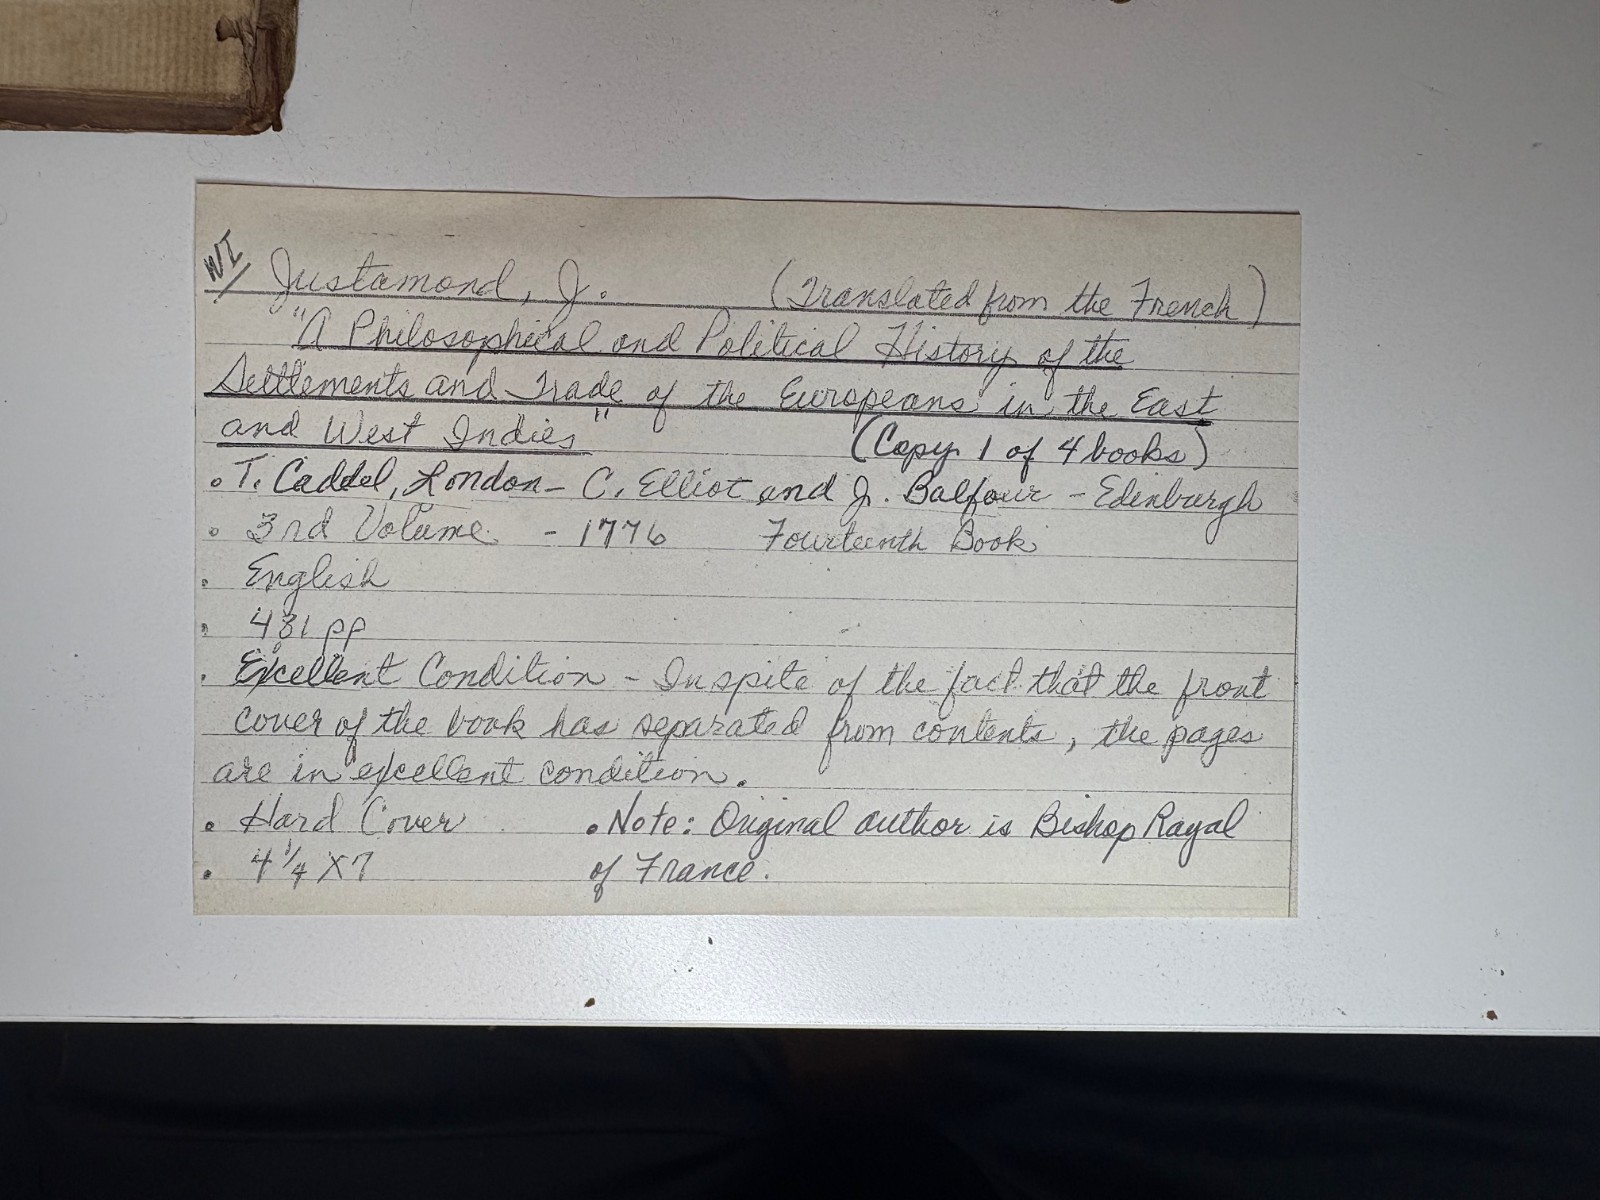 WI/ Justamond, J. (Translated from the French)
"A Philosophical and Political History of the
Settlements and Trade of the Europeans in the East
and West Indies" (Copy 1 of 4 books)
• T. Caddel, London - C. Elliot and J. Balfour - Edinburgh
• 3rd Volume - 1776 Fourteenth Book
• English
• 431 pp
• Excellent Condition - Inspite of the fact that the front
cover of the book has separated from contents, the pages
are in excellent condition.
• Hard Cover • Note: Original author is Bishop Rayal
• 4 1/4 X 7 of France.